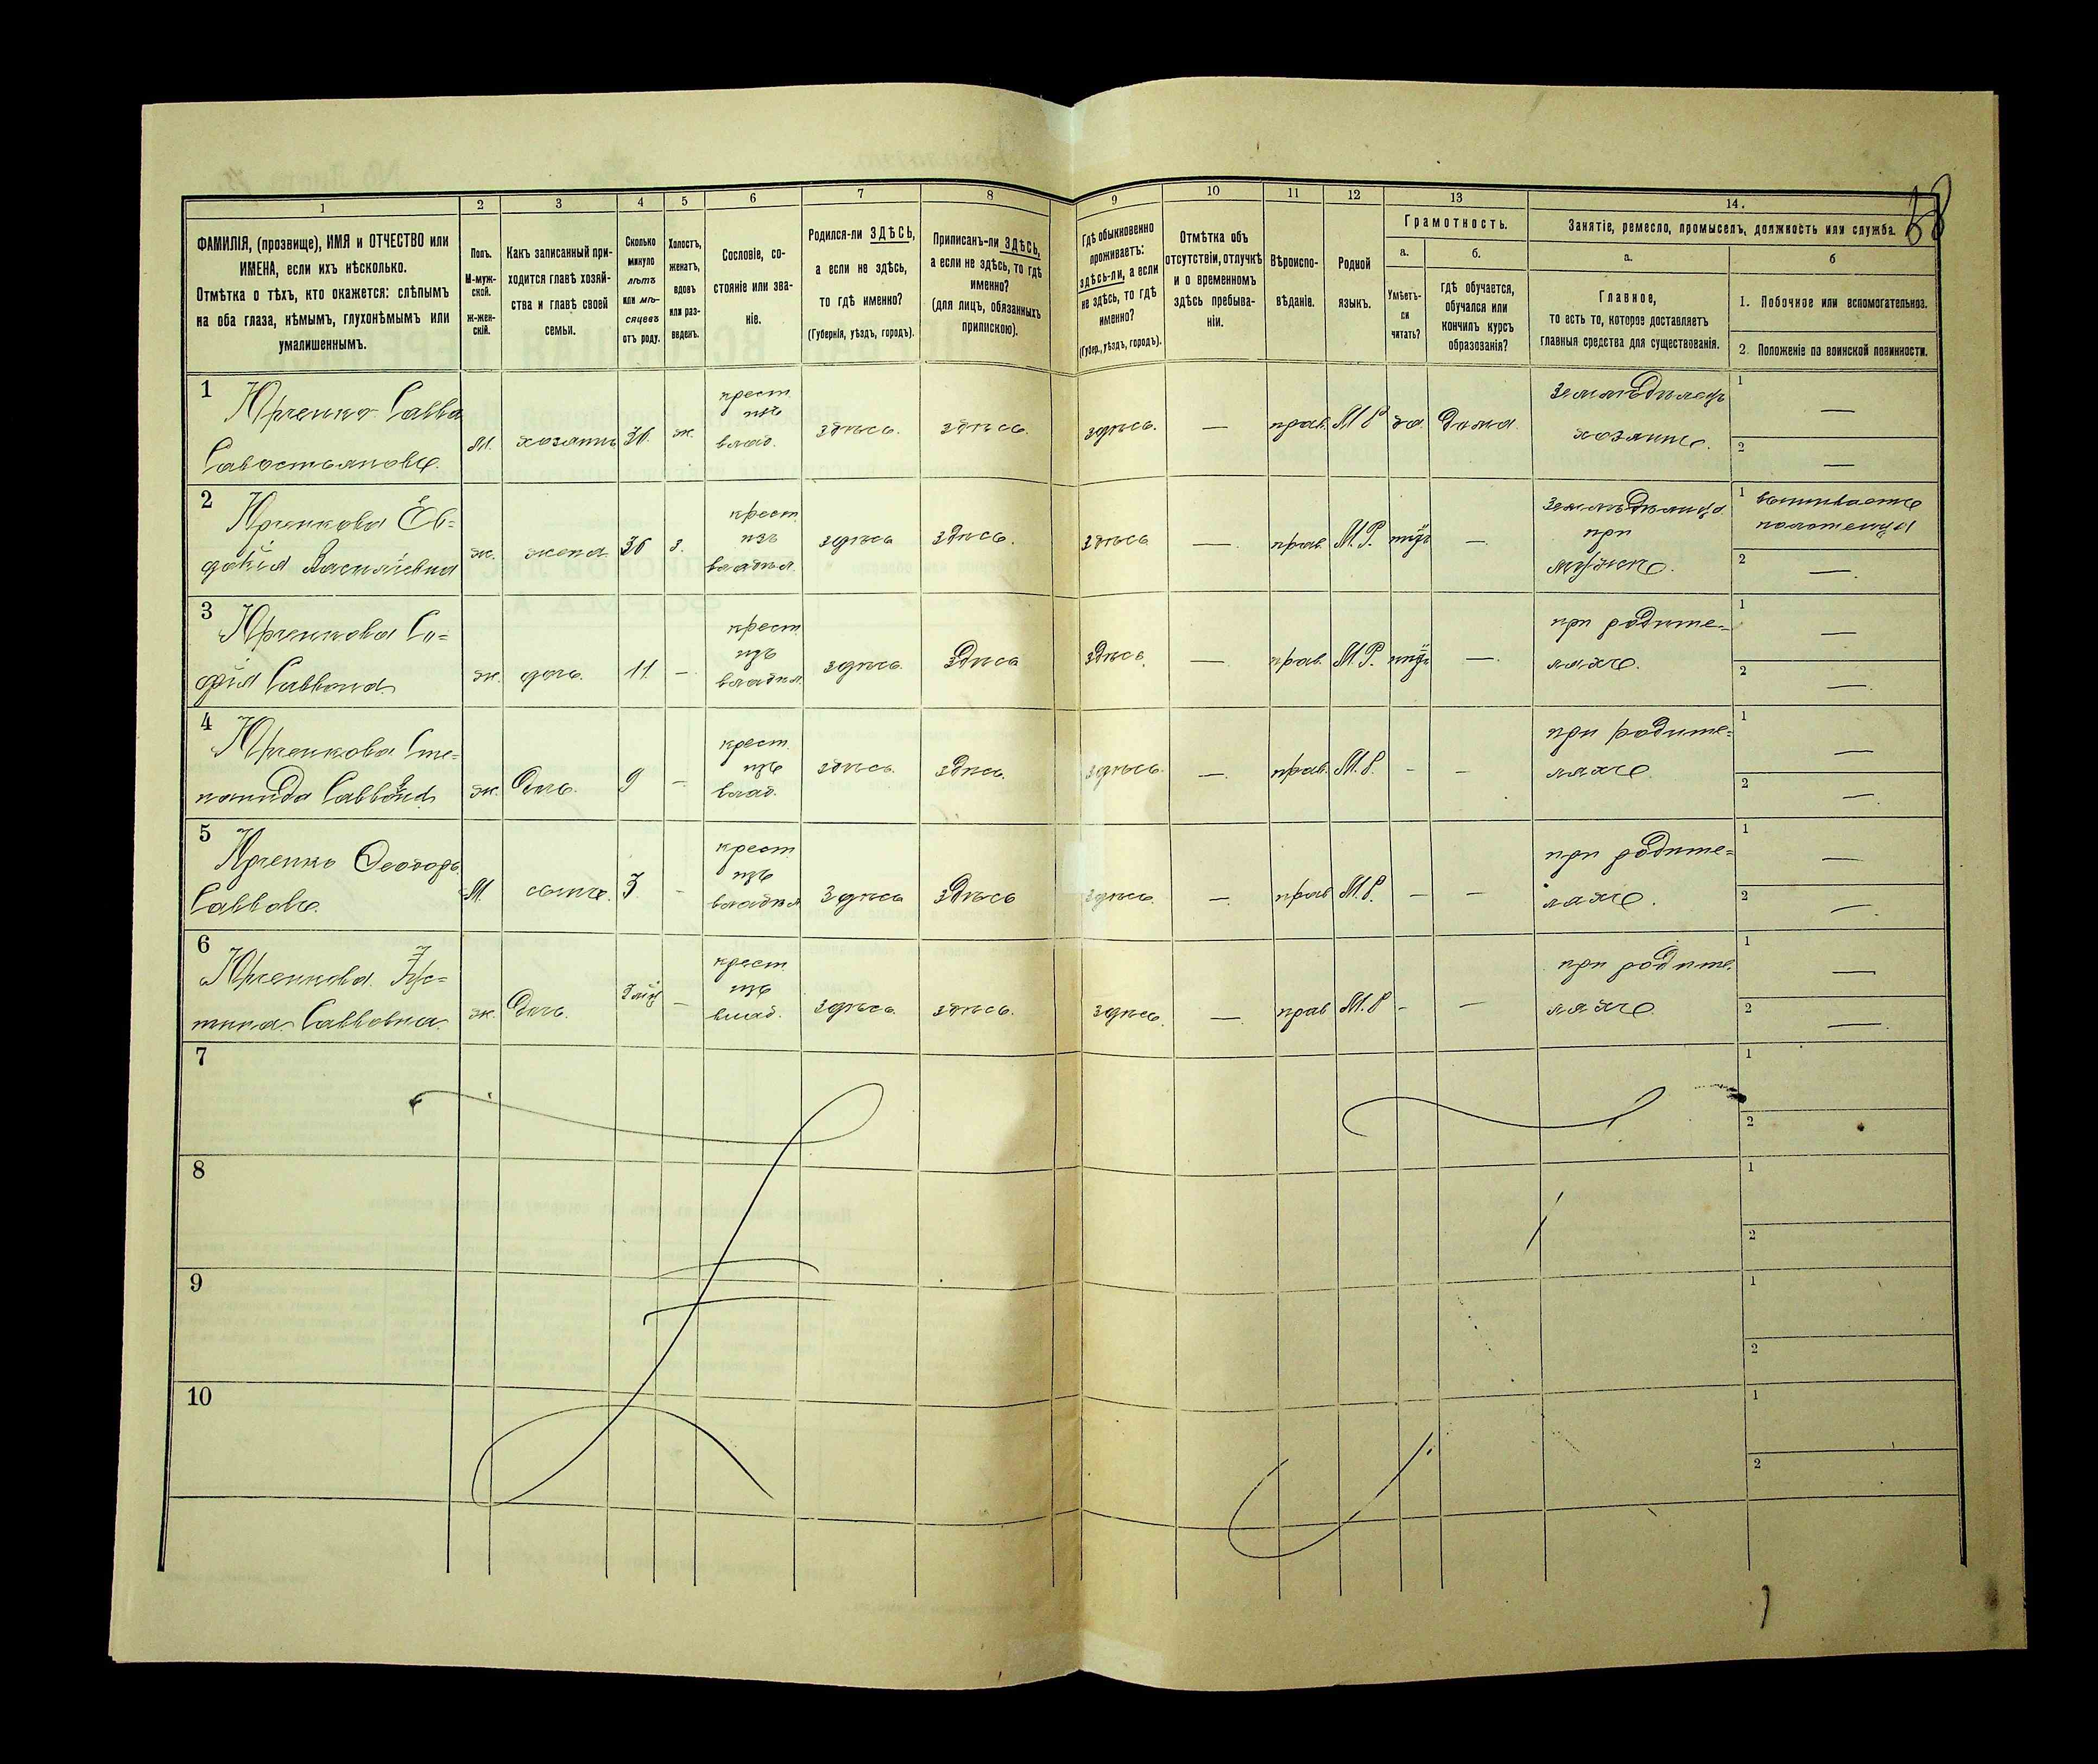 38
1 2 3 4 5 6 7 8 9 10 11 12 13 14.
ФАМИЛІЯ, (прозвище), ИМЯ и ОТЧЕСТВО или
ИМЕНА, если ихъ нѣсколько.
Отмѣтка о тѣхъ, кто окажется: слѣпымъ
на оба глаза, нѣмымъ, глухонѣмымъ или
умалишеннымъ.
Полъ.
М-муж-
ской.
ж-жен-
скій.
Какъ записанный при-
ходится главѣ хозяй-
ства и главѣ своей
семьи.
Сколько
минуло
лѣтъ
или мѣ-
сяцевъ
отъ роду.
Холостъ,
женатъ,
вдовъ
или раз-
веденъ.
Сословіе, со-
стояніе или зва-
ніе.
Родился-ли ЗДѢСЬ,
а если не здѣсь,
то гдѣ именно?
(Губернія, уѣздъ, городъ).
Приписанъ-ли ЗДѢСЬ,
а если не здѣсь, то гдѣ
именно?
(для лицъ, обязанныхъ
припискою).
Гдѣ обыкновенно
проживаетъ:
здѣсь-ли, а если
не здѣсь, то гдѣ
именно?
(Губер., уѣздъ, городъ).
Отмѣтка объ
отсутствіи, отлучкѣ
и о временномъ
здѣсь пребыва-
ніи.
Вѣроиспо-
вѣданіе.
Родной
языкъ.
Грамотность.
а.
Умѣетъ-
си
читать?
б.
гдѣ обучается,
обучался или
кончилъ курсъ
образованія?
Занятіе, ремесло, промыселъ, должность или служба.
а.
Главное,
то есть то, которое доставляетъ
главныя средства для существованія.
б
1. Побочное или вспомогательное.
2. Положеніе по воинской повинности.
1 Юрченко Савва
Савостьяновъ.
М. хозяинъ 36. ж.
крест.
изъ
влад.
здѣсь. здѣсь. здѣсь. — прав. М Р да. дома.
земледѣлецъ
хозяинъ.
1 —
2 —
2 Юрченкова Ев-
докія Васильевна
ж. жена 36 з.
крест.
изъ
владѣл.
здѣсь здѣсь. здѣсь —. прав. М.Р. —
земледѣлица
при
мужѣ.
1
полотенца
2 —.
3 Юрченкова Со-
фія Саввона
ж. дочь. 11. —
крест.
изъ
владѣл.
здѣсь. здѣсь здѣсь. —. прав. М.Р. —.
при родите-
ляхъ.
1 —
2 —.
4 Юрченкова Сте-
панида Саввовна
ж. дочь. 9 —
крест.
изъ
влад.
здѣсь. здѣсь. здѣсь. —. прав. М.Р. - -
при родите-
ляхъ.
1 —
2 —.
5 Юрченко Ѳеодоръ
Саввовъ.
М. сынъ. 3 —
крест.
изъ
владѣл
здѣсь здѣсь здѣсь. —. прав М.Р. - -
при родите-
ляхъ.
1 —
2 —.
6 Юрченкова Іус-
тина Саввовна
ж. дочь. —
крест.
изъ
влад.
здѣсь. здѣсь. здѣсь. —. прав М.Р - -
при родите-
ляхъ.
1 —
2 —.
7
1
2
8
1
2
9
1
2
10
1
2